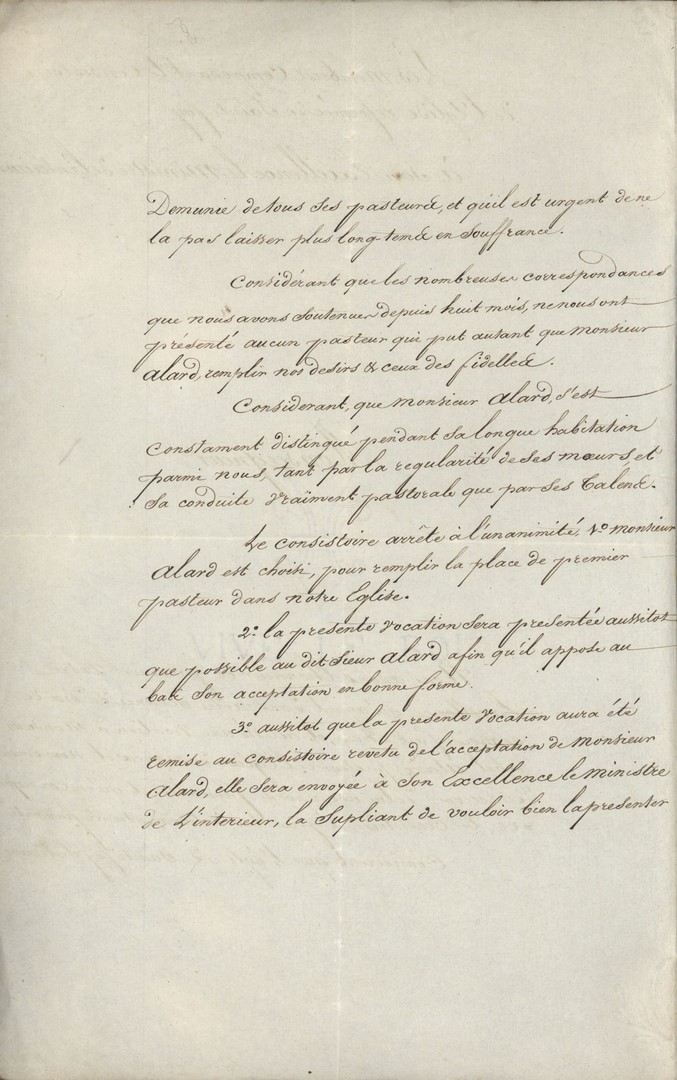 Demunie de tous ses pasteurs, et qu'il est urgent de ne
la pas laisser plus long-tems en Souffrance.
Considérant que les nombreuses correspondances
que nous avons Soutenues depuis huit mois, ne nous ont
présenté aucun pasteur qui put autant que monsieur
Alard, remplir nos desirs & ceux des fidelles.
Considerant, que monsieur Alard, s'est
Constament distingué pendant sa longue habitation
parmi nous, tant par la regularité de ses mœurs et
Sa conduite vraiment pastorale que par ses Talens.
Le consistoire arrête à l'unanimité, 1º monsieur
Alard est choisi, pour remplir la place de premier
pasteur dans notre Eglise.
2º la presente vocation sera presentée aussitot
que possible au dit Sieur Alard afin qu'il appose au
bas Son acceptation en bonne forme.
3º aussitot que la presente vocation aura été
remise au consistoire revetu de l'acceptation de Monsieur
Alard, elle sera envoyée à Son Excellence le ministre
de L'interieur, la Supliant de vouloir bien la presenter